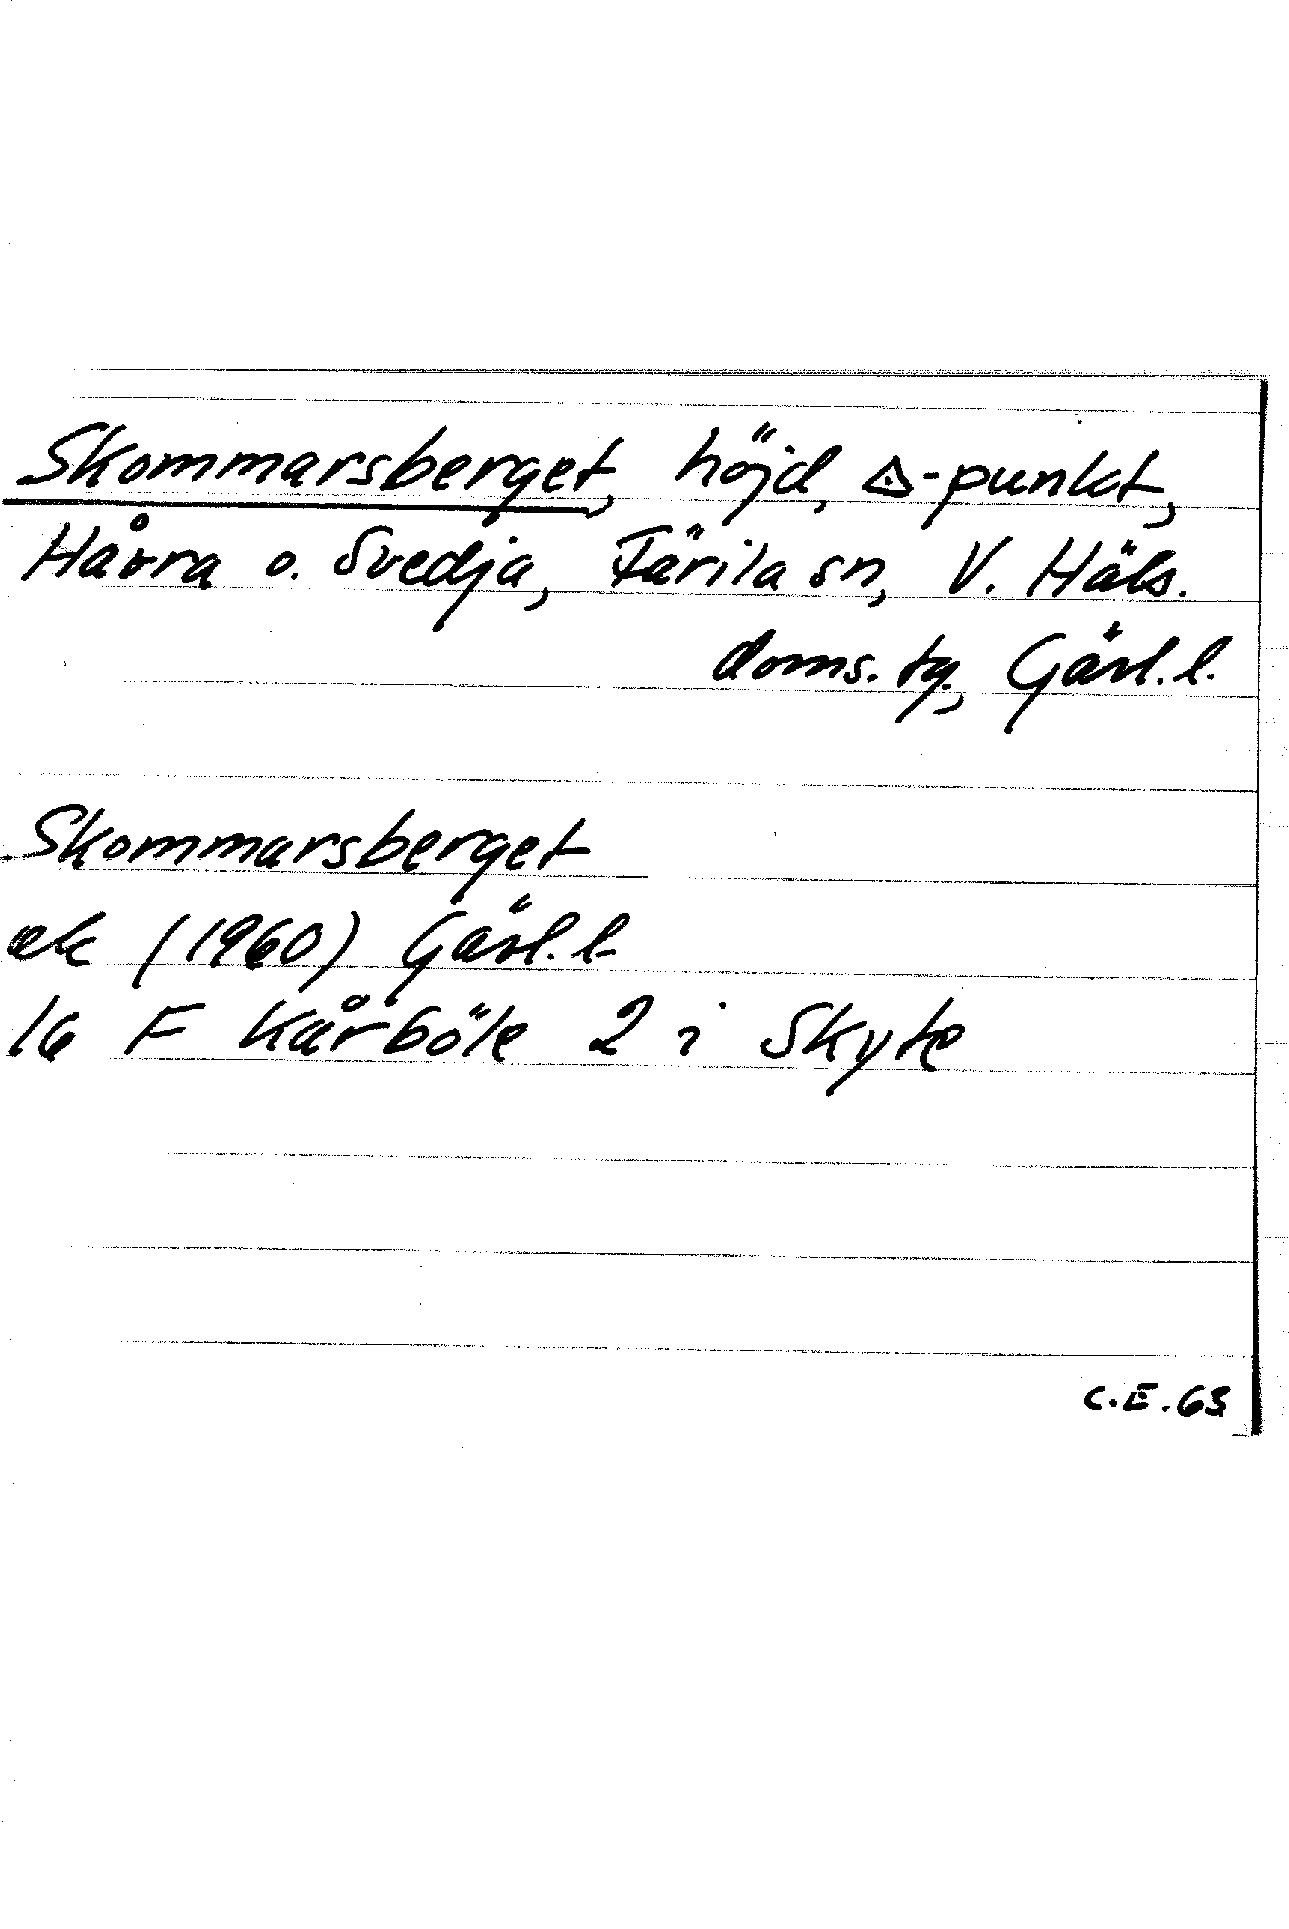 Skommarsberget, höjd, △-punkt,
Håvra o. Svedja, Färila sn, V. Häls.
doms. tg, Gävl. l.
Skommarsberget
ek (1960) Gävl. l.
16 F Kårböle 2 i Skyte
C.E. 63